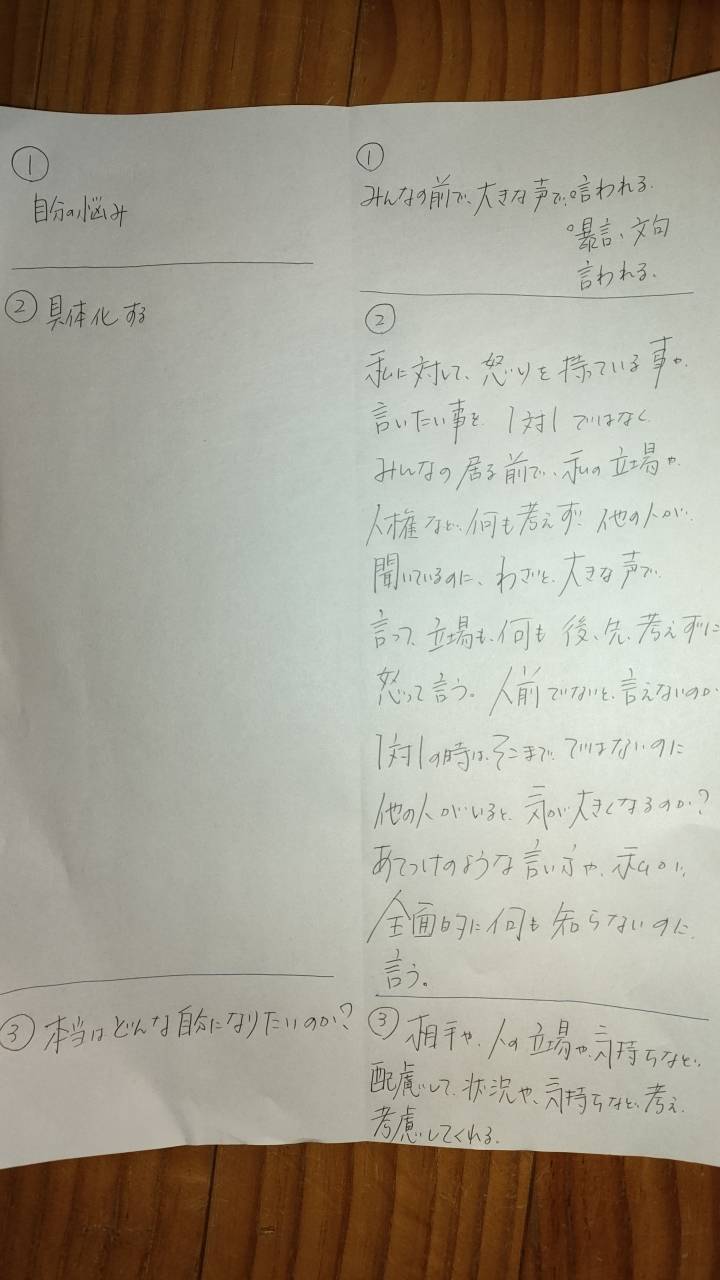 ①
自分の悩み
② 具体化する
③ 本当はどんな自分になりたいのか?
①
みんなの前で、大きな声で、言われる。
暴言、文句
言われる。
②
私に対して、怒りを持っている事や、
言いたい事を、1対1ではなく
みんなの居る前で、私の立場や、
人権など、何も考えず、他の人が、
聞いているのに、わざと、大きな声で、
言って、立場も、何も後、先、考えずに
怒って言う。人前でないと、言えないのか
1対1の時は、そこまで、ではないのに
他の人がいると、気が大きくなるのか?
あてつけのような言い方や、私が、
全面的に何も知らないのに、
言う。
③ 相手や、人の立場や、気持ちなど、
配慮して、状況や、気持ちなど、考え、
考慮してくれる。